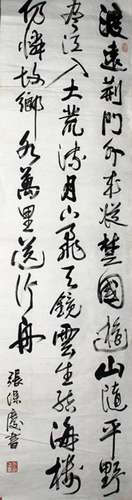 渡遠荊門外來從楚國遊山隨平野
盡江入大荒流月下飛天鏡雲生結海樓
仍憐故鄉水萬里送行舟
張慶書